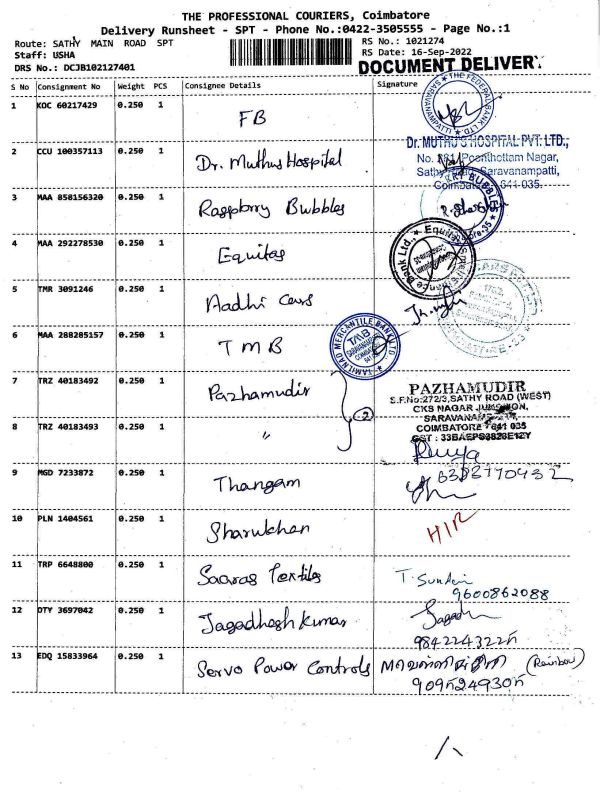 THE PROFESSIONAL COURIERS, Coimbatore
Delivery Runsheet - SPT - Phone No.:0422-3505555 - Page No.:1
Route: SATHY MAIN ROAD SPT
RS No.: 1021274
Staff: USHA
RS Date: 16-Sep-2022
DRS No.: DCJB102127401
DOCUMENT DELIVERY
S No Consignment No Weight PCS Consignee Details Signature
1 KOC 60217429 0.250 1 FB
THE FEDERAL BANK LTD
SARAVANAMPATTI
2 CCU 100357113 0.250 1 Dr. Muthus Hospital
Dr. MUTHU'S HOSPITAL PVT. LTD.,
Poanthottam Nagar,
Saravanampatti,
641-035.
3 MAA 858156320 0.250 1 Raspbrry Bubbles
BUBBLES
4 MAA 292278530 0.250 1 Equitas
Bank Ltd., Equitas
5 TMR 3091246 0.250 1 Aadhi Cars
CARS
6 MAA 288285157 0.250 1 TMB
TAMILNAD MERCANTILE BANK LTD
TMB
7 TRZ 40183492 0.250 1 Pazhamudir
8 TRZ 40183493 0.250 1 "
2
PAZHAMUDIR
S.F.No:272/3,SATHY ROAD (WEST)
CKS NAGAR
COIMBATORE - 641 035
9 MGD 7233872 0.250 1 Thangam
10 PLN 1404561 0.250 1 Sharukhan
11 TRP 6648800 0.250 1 Saaras Textiles
9600862088
12 DTY 3697042 0.250 1 Jagadheshkumar
Jagadh
9842243225
13 EDQ 15833964 0.250 1 Servo Power Controls
(Rainbow)
9095249305